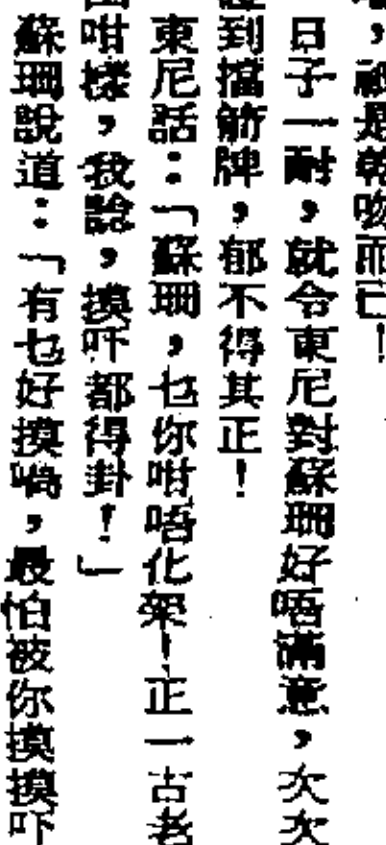 ，祇是乾吻而已！
日子一耐，就令東尼對蘇珊好唔滿意，次次
到擋箭牌，郁不得其正！
東尼話：「蘇珊，乜你咁唔化架！正一古老
咁樣，我諗，摸吓都得卦！」
蘇珊說道：「有乜好摸喎，最怕被你摸摸吓